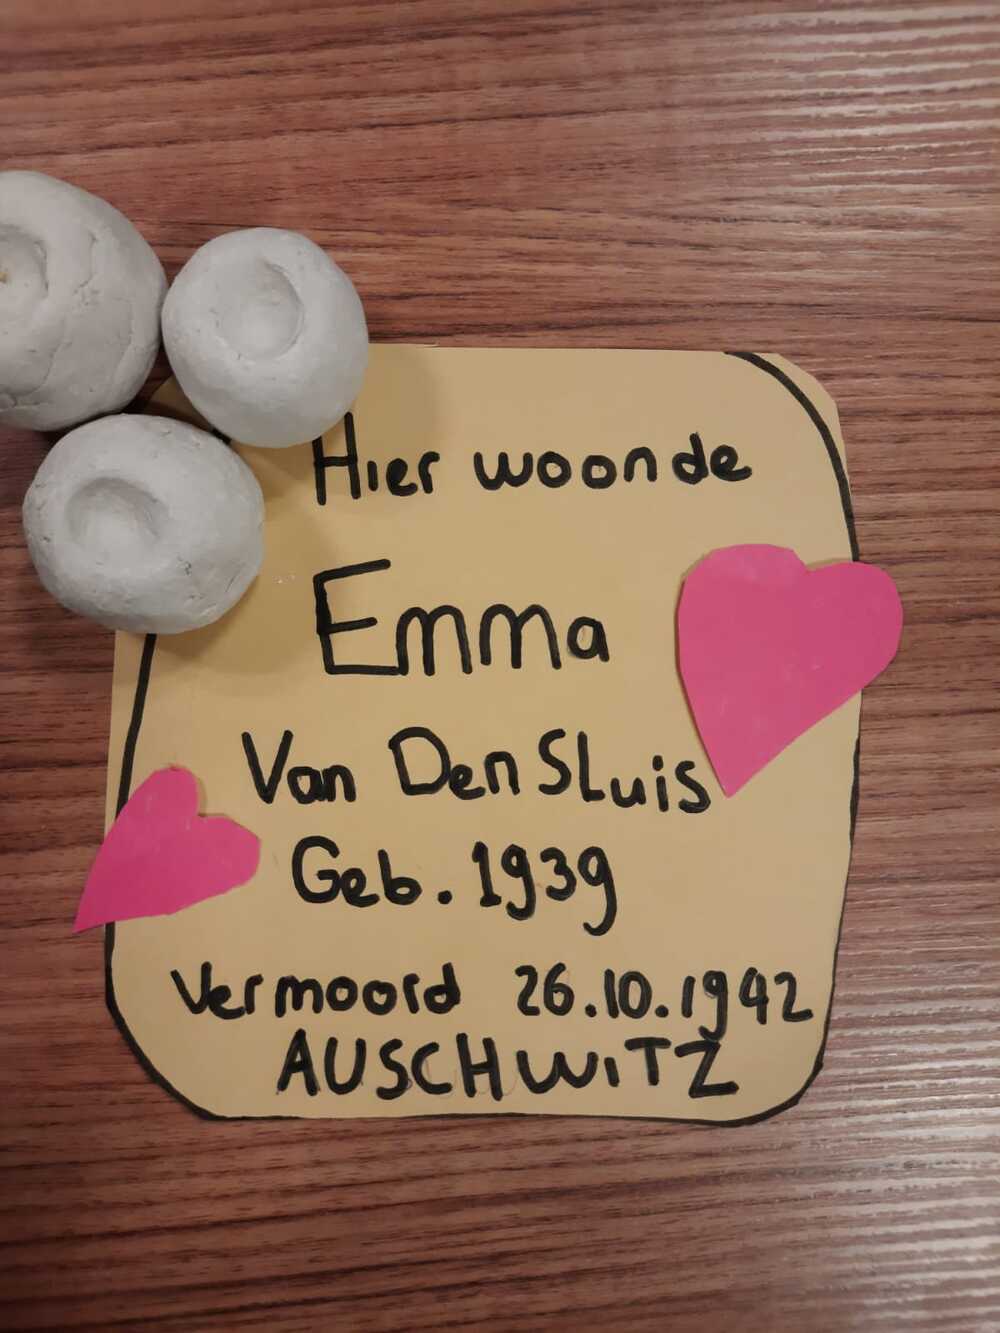 Hier woonde
Emma
Van Den Sluis
Geb. 1939
Vermoord 26.10.1942
AUSCHWITZ